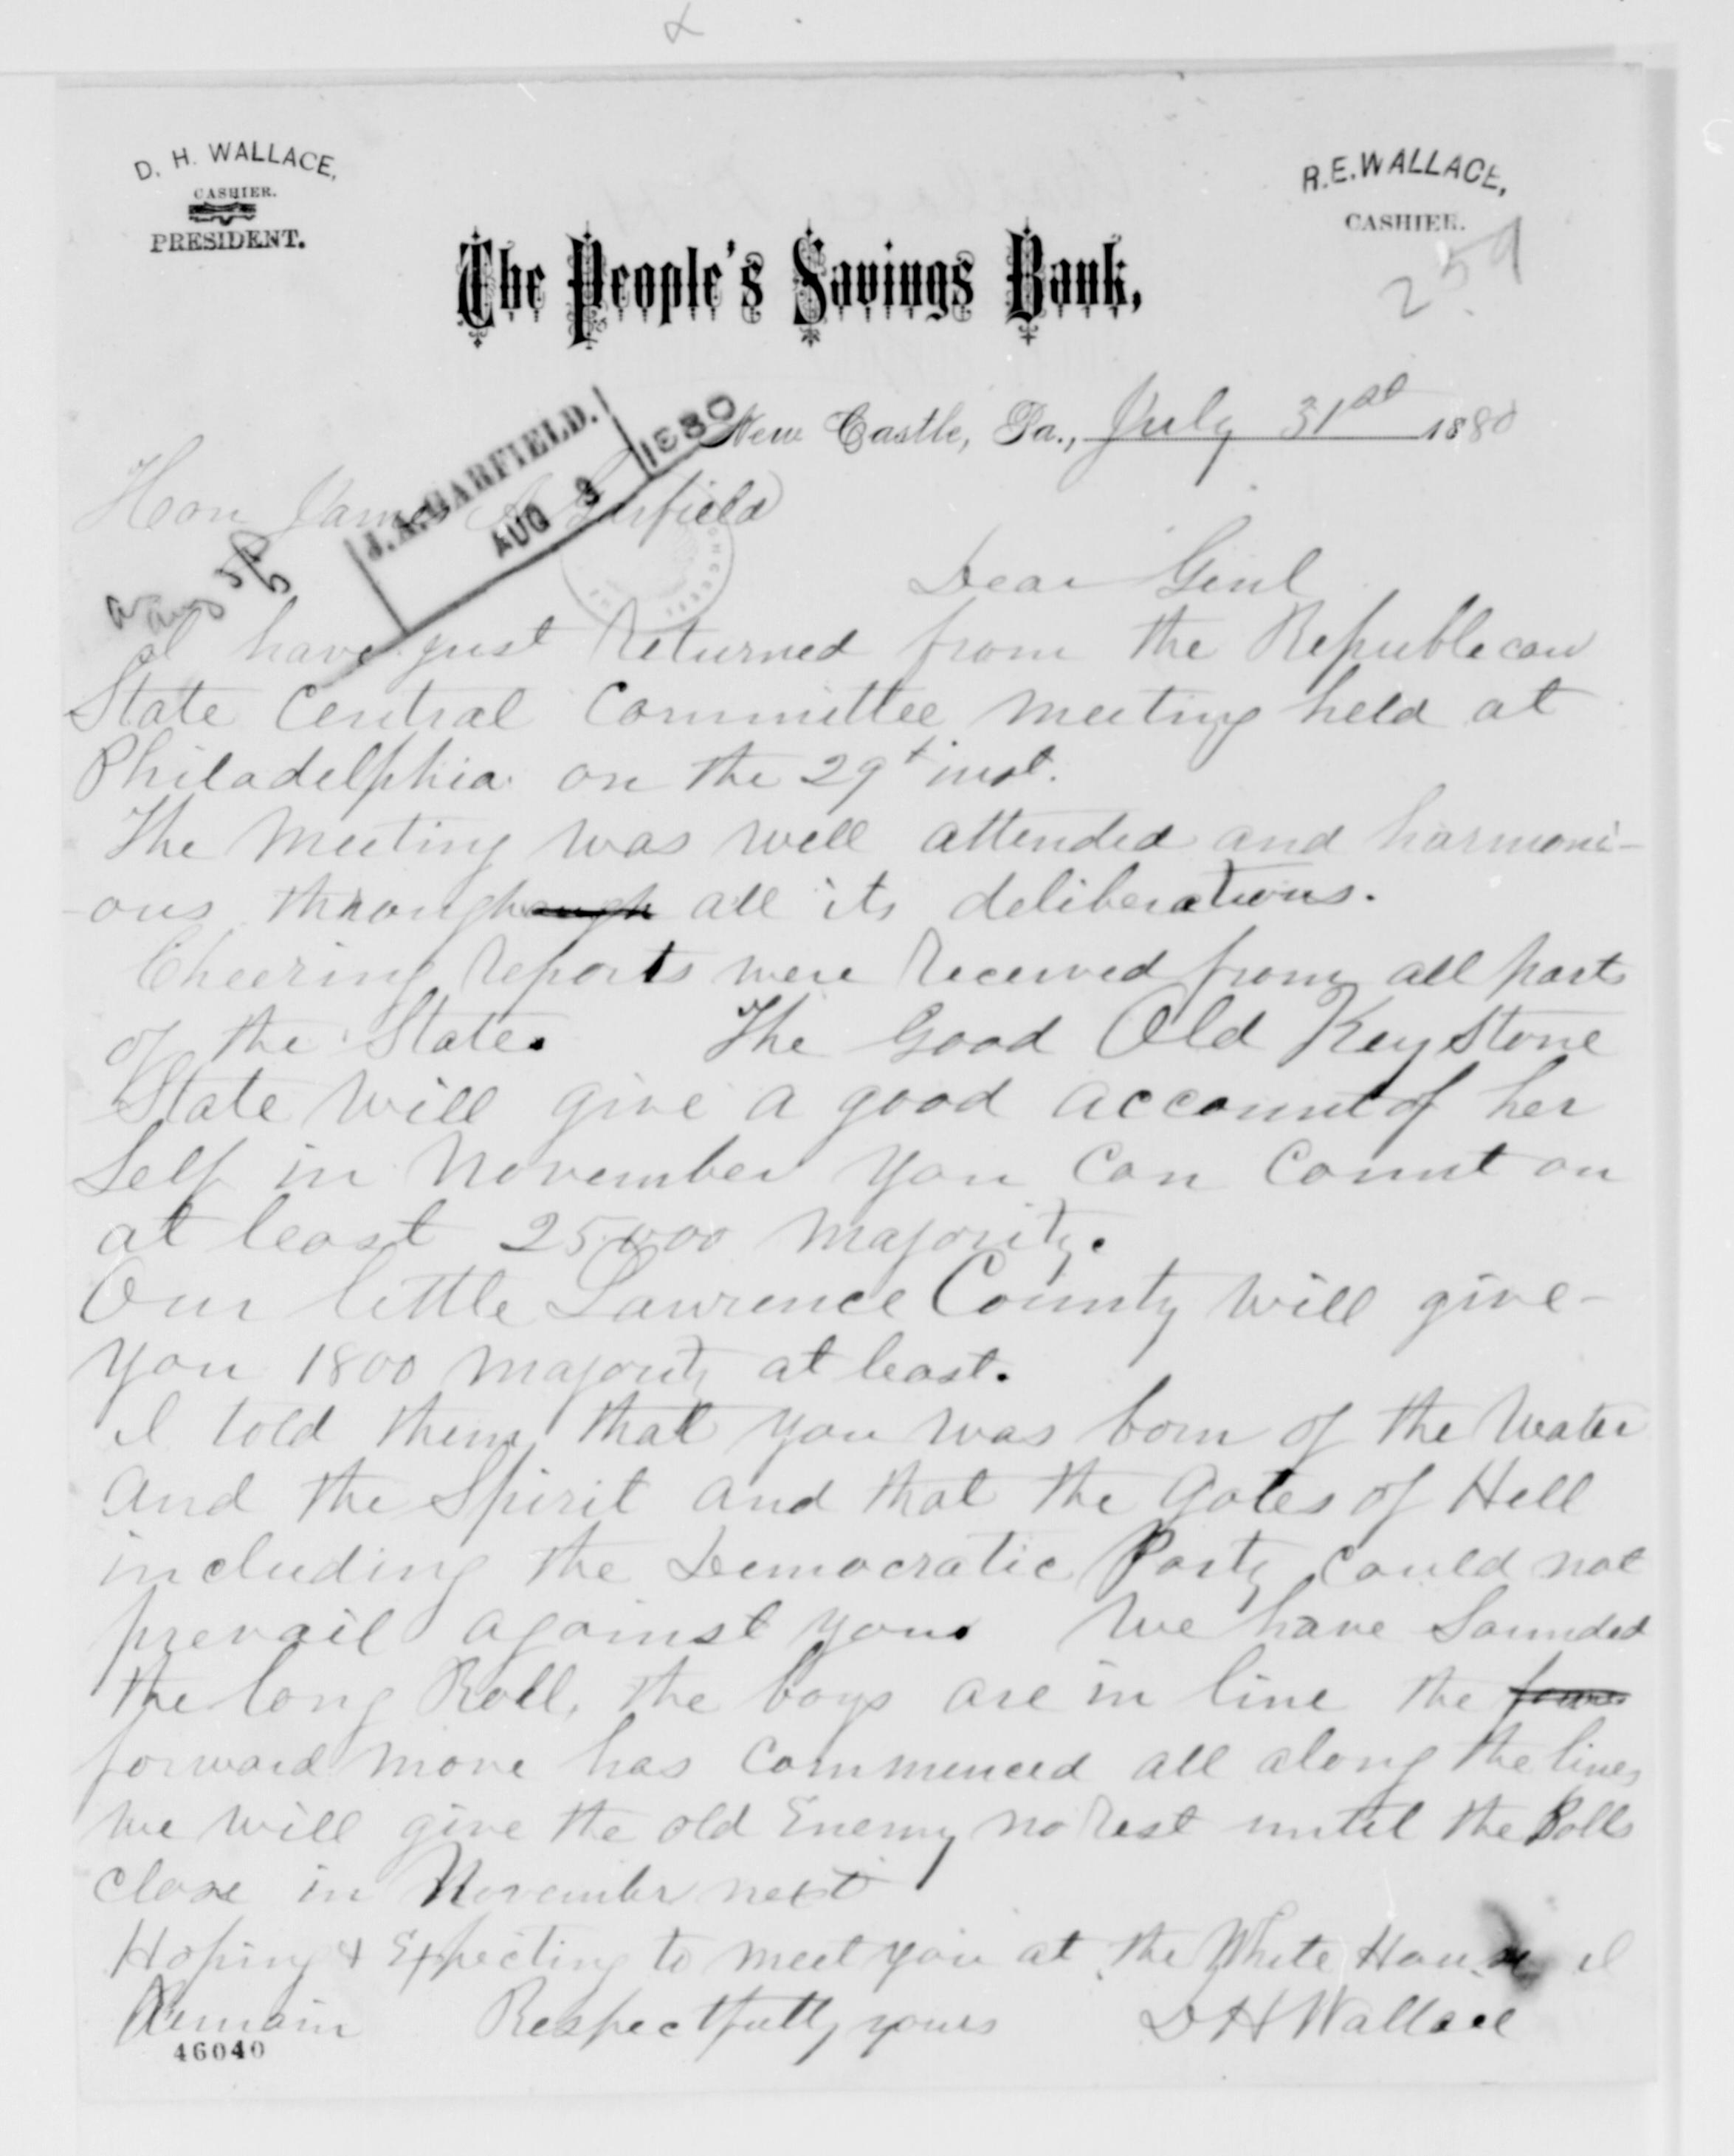 D. H. WALLACE,
CASHIER.
PRESIDENT.
R. E. WALLACE,
CASHIER.
259
The People's Savings Bank,
New Castle, Pa., July 31st 1880
J. A. GARFIELD.
AUG 3 1880
Hon James A Garfield
Aug 5/80
Dear Genl
I have just returned from the Republican
State Central Committee meeting held at
Philadelphia on the 29t inst.
The meeting was well attended and harmoni-
-ous through all its deliberations.
Cheering reports were received from all parts
of the State. The Good Old Key Stone
State will give a good account of her
Self in November you can count on
at least 25000 majority.
Our little Lawrence County will give-
you 1800 majority at least.
I told them that you was born of the water
and the Spirit and that the Gates of Hell
including the Democratic Party could not
prevail against you. We have Sounded
the long Roll, the boys are in line the
forward move has commenced all along the lines
we will give the old Enemy no rest until the Polls
close in November next
Hoping & Expecting to meet you at the White House I
Remain Respectfully yours D H Wallace
46040